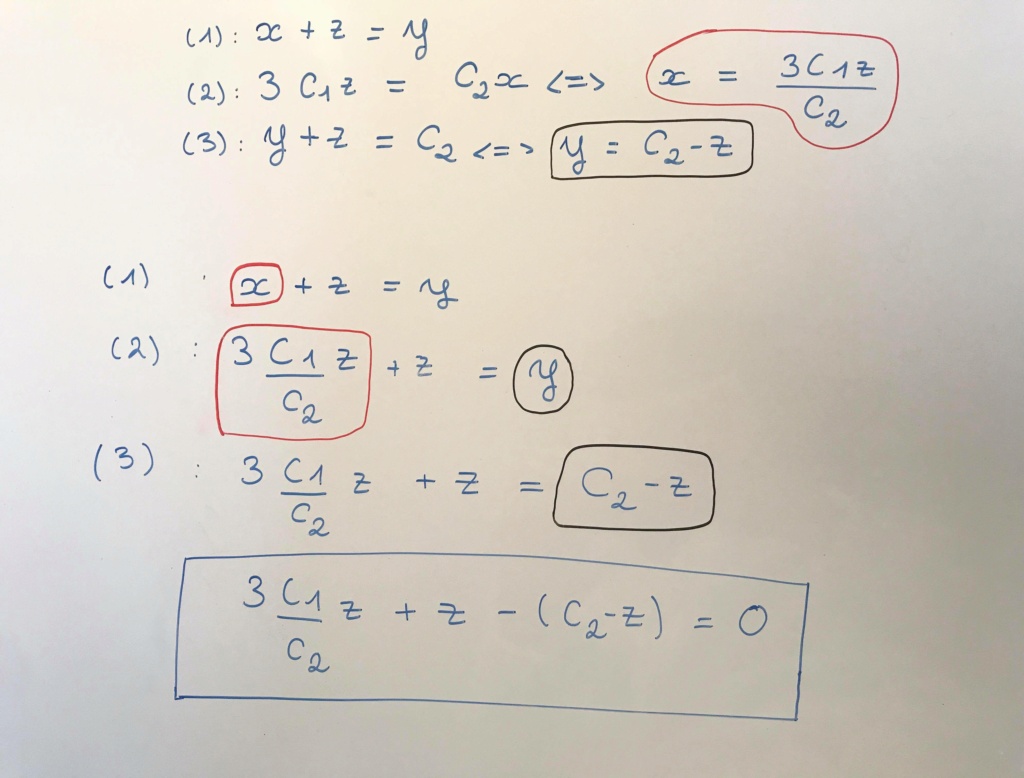 (1): x + z = y
(2): 3 C₁z = C₂x <=> x = 3C1z/C₂
(3): y + z = C₂ <=> y = C₂ - z
(1) : x + z = y
(2) : 3 C1/C₂ z + z = y
(3) : 3 C1/C₂ z + z = C₂ - z
3 C1/C₂ z + z - (C₂-z) = 0